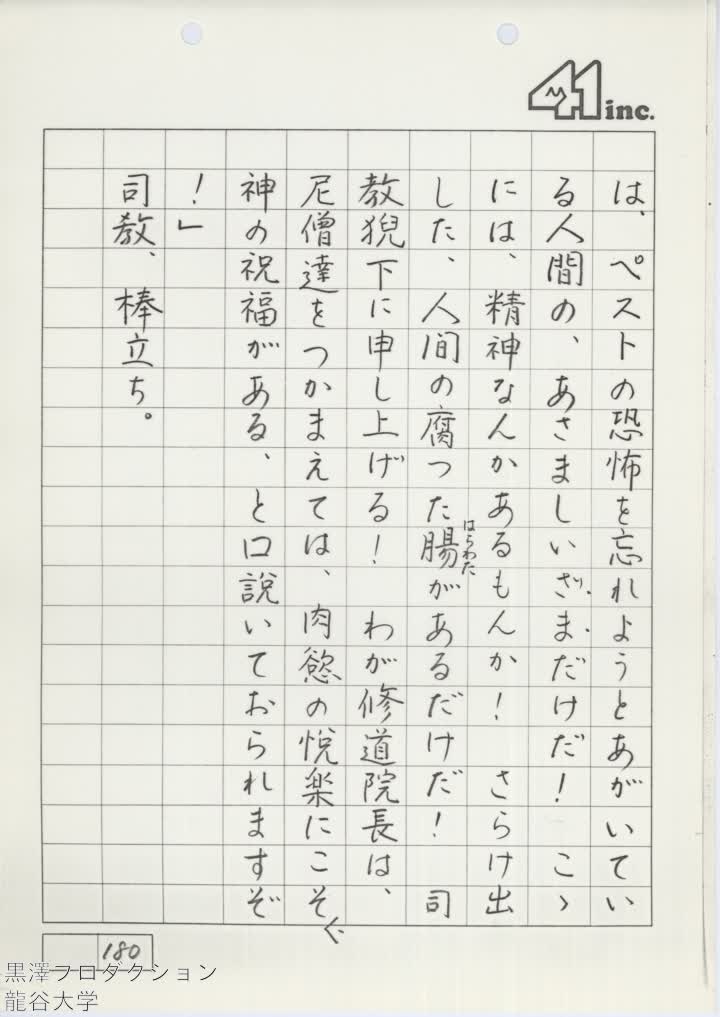 41 inc.
は、ペストの恐怖を忘れようとあがいてい
る人間の、あさましいざまだけだ！　こゝ
には、精神なんかあるもんか！　さらけ出
した、人間の腐つた腸があるだけだ！　司
はらわた
教猊下に申し上げる！　わが修道院長は、
尼僧達をつかまえては、肉慾の悦楽にこそ
神の祝福がある、と口説いておられますぞ
！」
司教、棒立ち。
180
黒澤プロダクション
龍谷大学